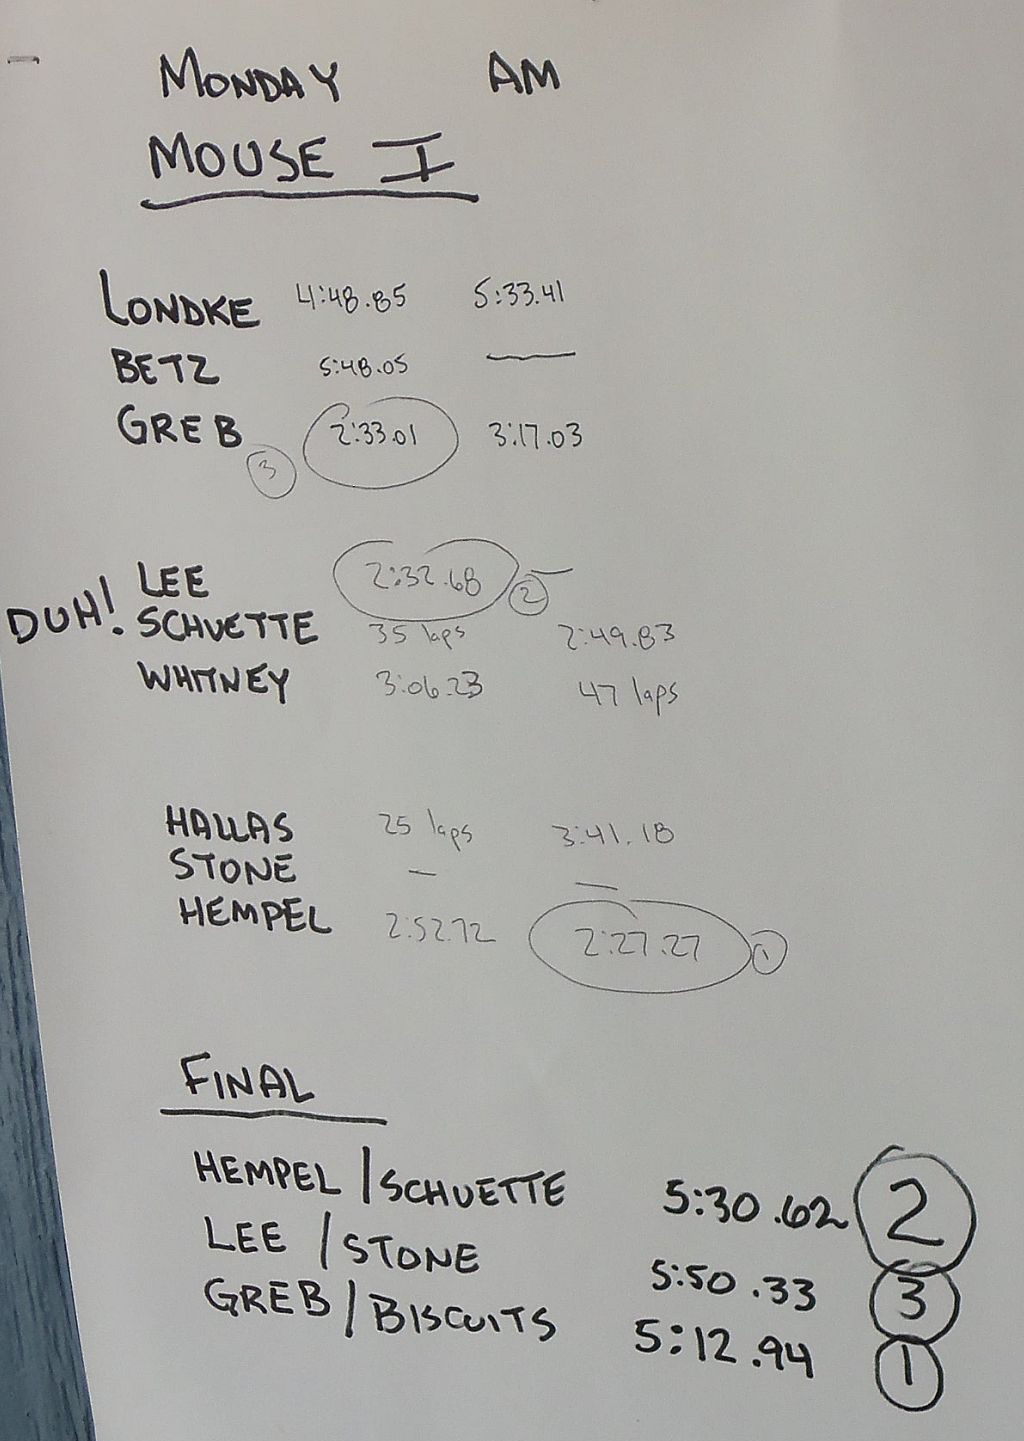 MONDAY AM
MOUSE I
LONDKE 4:48.85 5:33.41
BETZ 5:48.05 —
GREB 2:33.01 3:17.03
3
LEE 2:32.68 2 —
DUH! SCHUETTE 35 laps 2:49.83
WHITNEY 3:06.23 47 laps
HALLAS 25 laps 3:41.18
STONE — —
HEMPEL 2:52.72 2:27.27 1
FINAL
HEMPEL / SCHUETTE 5:30.62 2
LEE / STONE 5:50.33 3
GREB / BISCUITS 5:12.94 1